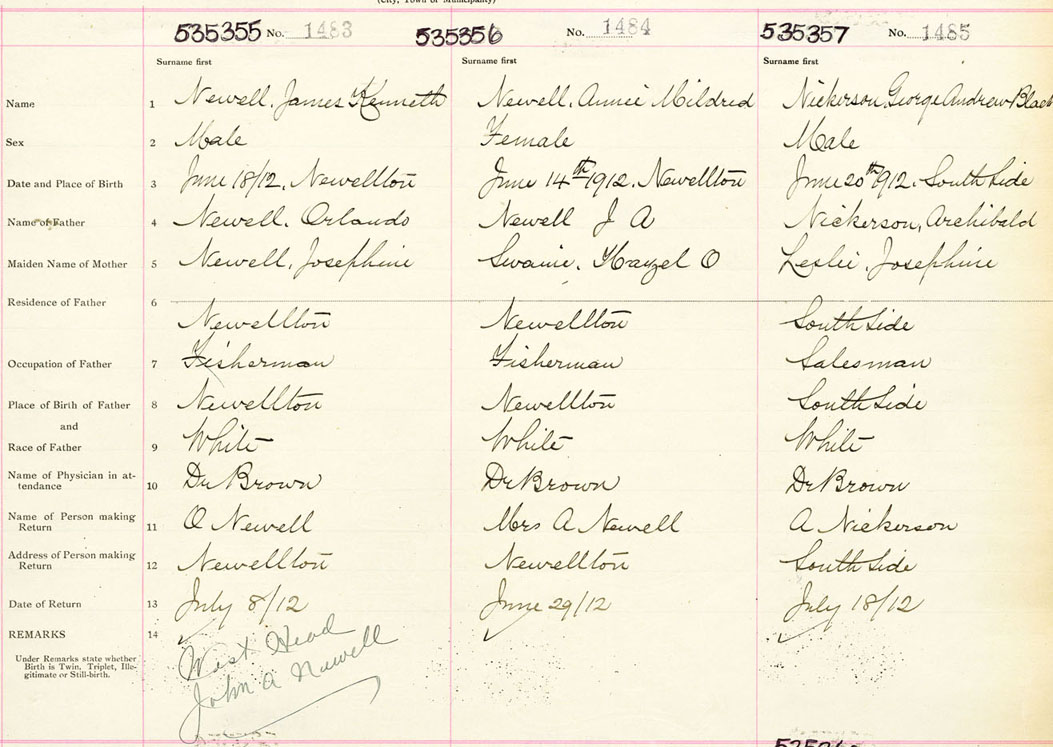 (City, Town or Municipality)
535355 No. 1483 535356 No. 1484 535357 No. 1485
Surname first Surname first Surname first
Name 1 Newell, James Kenneth Newell, Annie Mildred Nickerson, George Andrew
Sex 2 Male Female Male
Date and Place of Birth 3 June 18/12, Newellton June 14th 1912, Newellton June 20th 1912. South Side
Name of Father 4 Newell, Orlando Newell J A Nickerson, Archibald
Maiden Name of Mother 5 Newell, Josephine Swaine, Hayzel O Leslie, Josephine
Residence of Father 6
Newellton Newellton South Side
Occupation of Father 7 Fisherman Fisherman Salesman
Place of Birth of Father 8 Newellton Newellton South Side
and
Race of Father 9 White White White
Name of Physician in at-
tendance 10 Dr Brown Dr Brown Dr Brown
Name of Person making
Return 11 O Newell Mrs A Newell A Nickerson
Address of Person making
Return 12 Newellton Newellton South Side
Date of Return 13 July 8/12 June 29/12 July 18/12
REMARKS 14
Under Remarks state whether
Birth is Twin, Triplet, Ille-
gitimate or Still-birth.
West Head
John A Newell